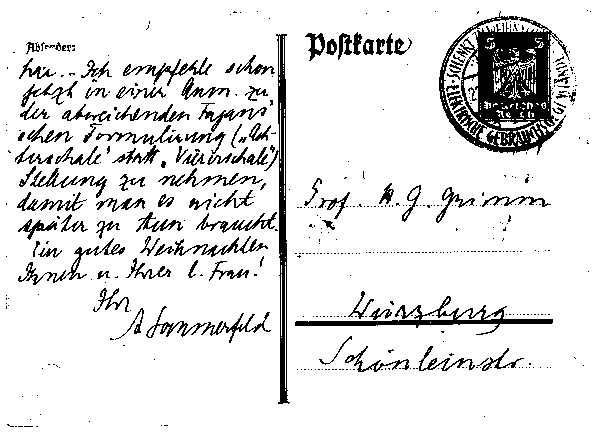 Absender:
hin. - Ich empfehle schon
jetzt in einer Anm. zu
der abweichenden Fajans'
schen Formulierung („Ach
terschale" statt „Viererschale")
Stellung zu nehmen,
damit man es nicht
später zu tun braucht.
Ein gutes Weihnachten
Ihnen u. Ihrer l. Frau!
Ihr
A Sommerfeld
Postkarte
5 5
SCHENKT
ELEKTRISCHE GEBRAUCHS
Prof. H. G. Grimm
Würzburg
Schönleinstr.